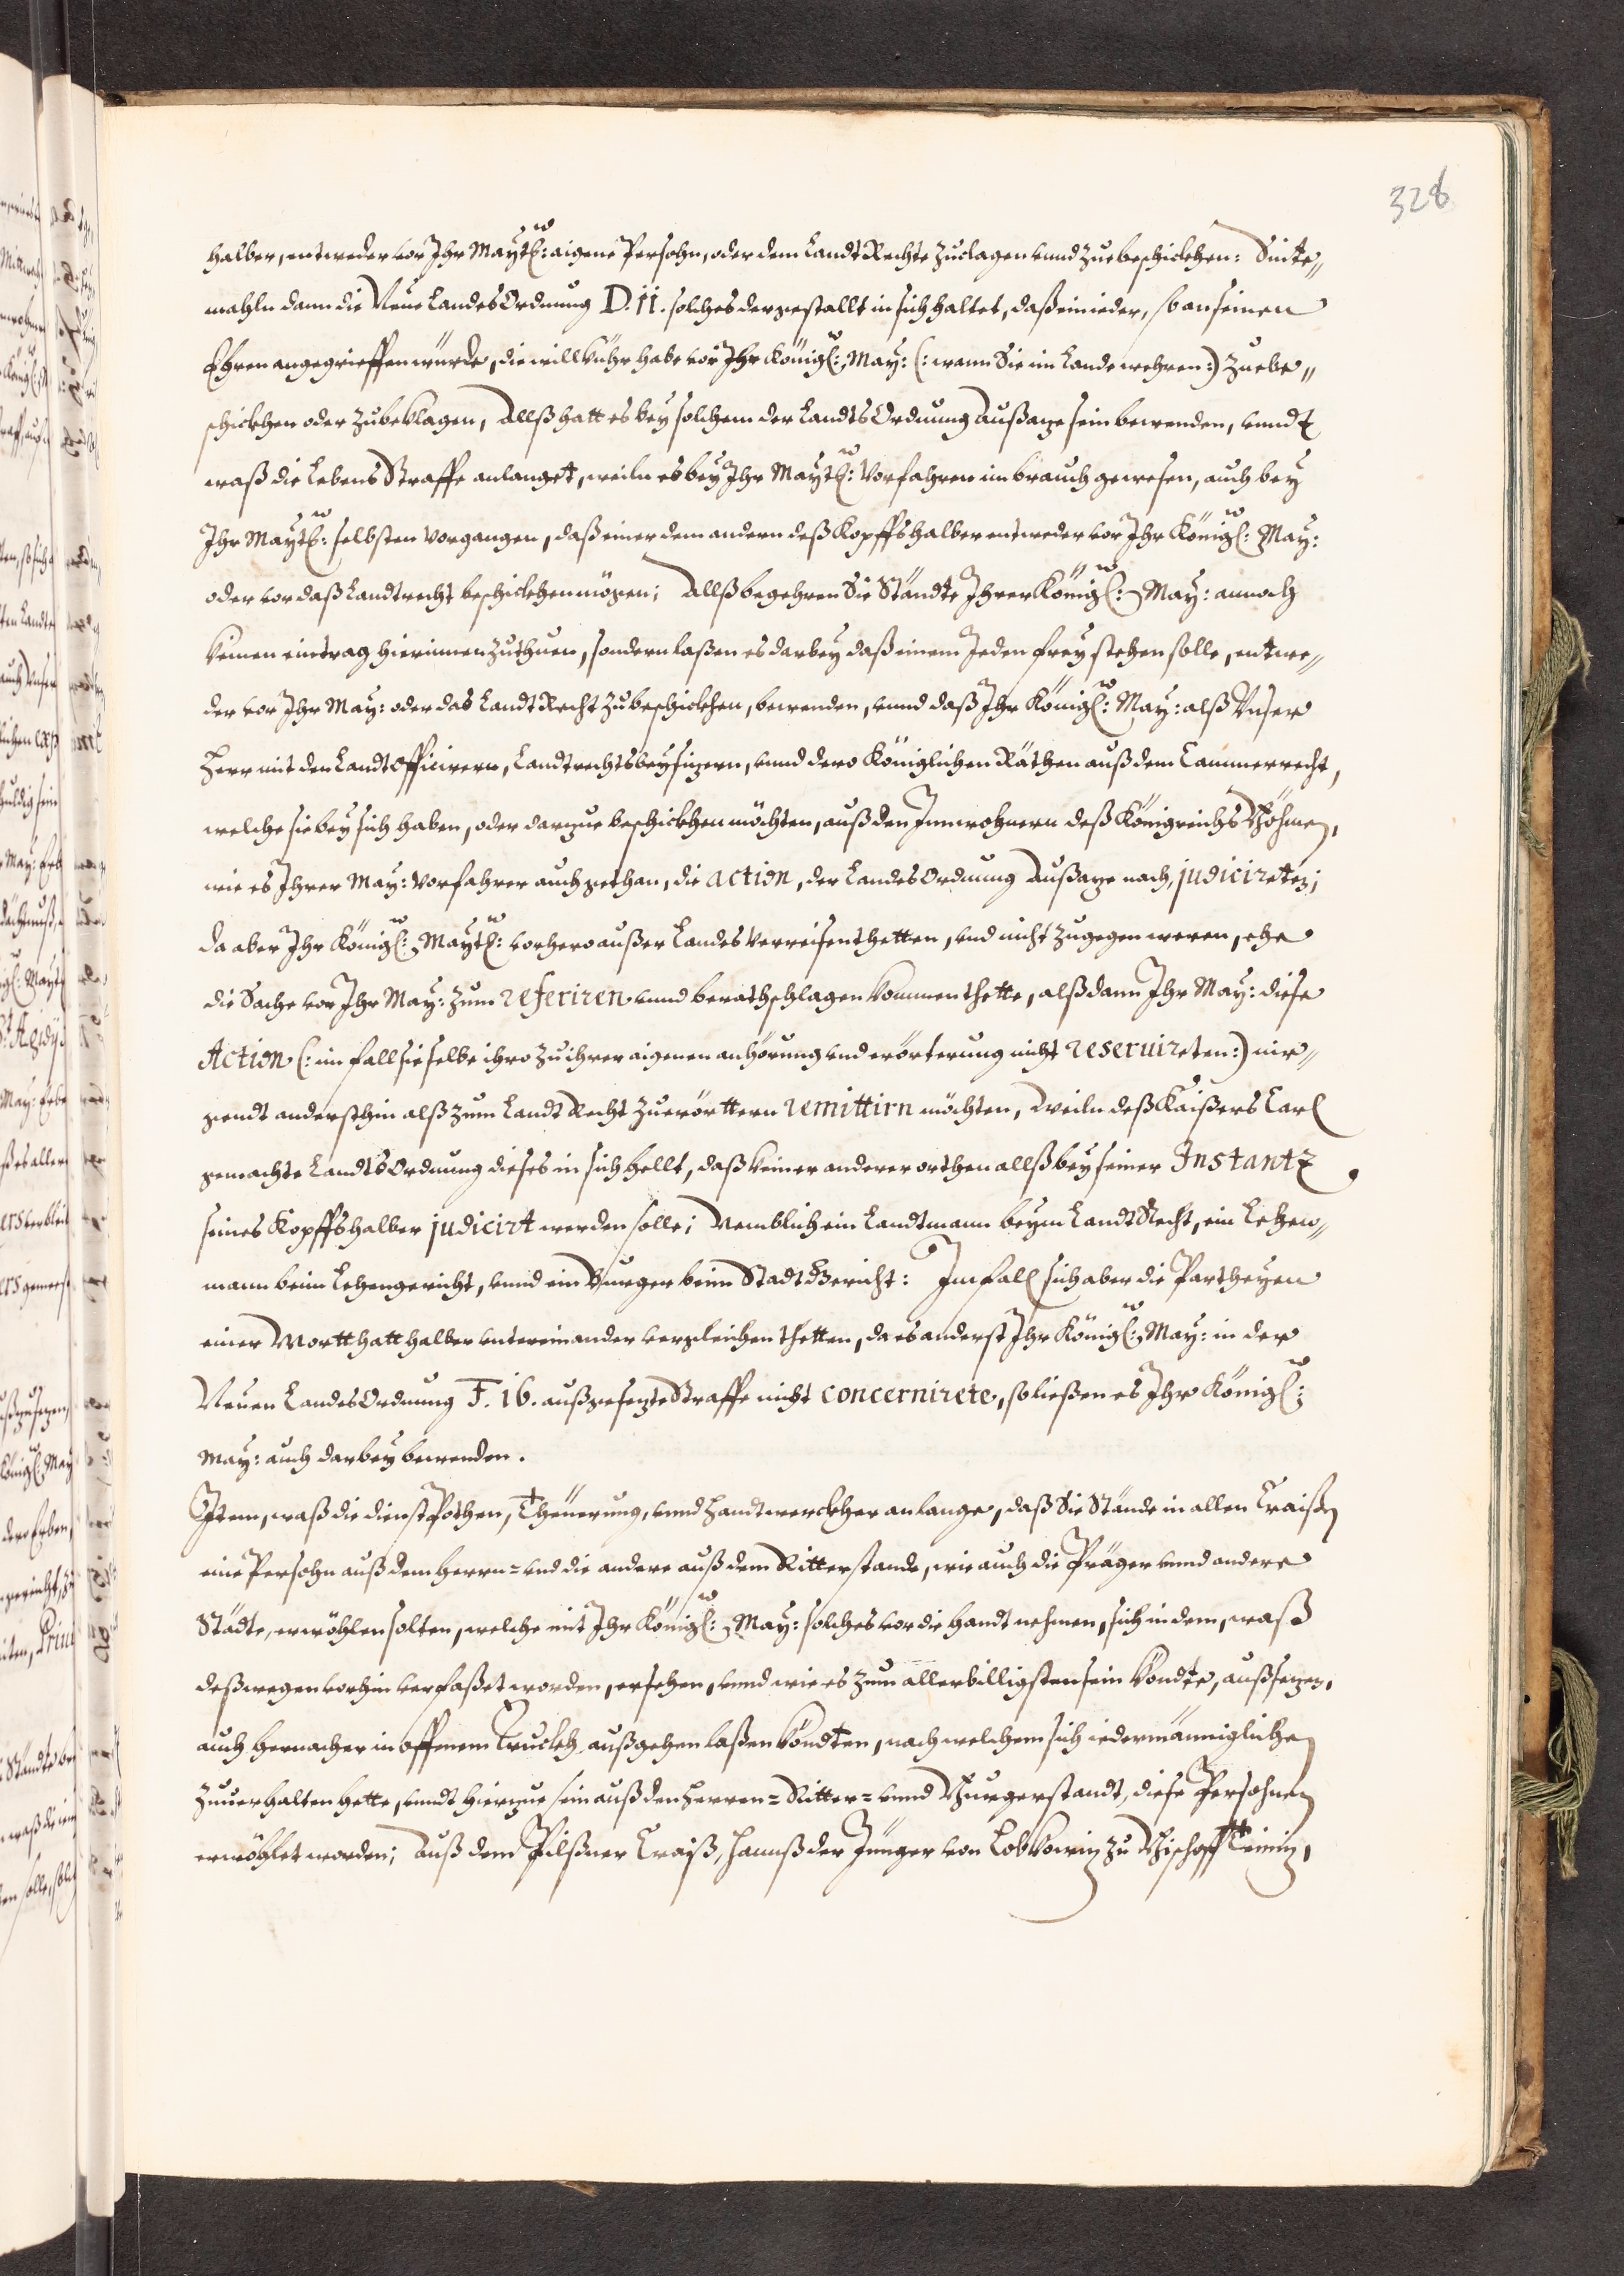 328
halber, entweder vor Ihr Maytl: aigene Persohn, oder dem LandtRechte zuclagen vnnd zuebeschickhen: Sinte„
mahln dann die Neue LandesOrdnung D. 11. solches dergestallt in sich haltet, daß ein ieder, so an seinen
Ehren angegrieffen würde, die willkühr habe vor Ihr Königl: May: (: wann Sie im Lande wehren :) zuebe„
schickhen oder zubeklagen, Allß hatt es bey solchem der LandtsOrdnung Außage sein bewenden, vnndt
waß die LebensStraffe anlanget, weiln es bey Ihr Maytl: Vorfahren im brauch gewesen, auch bey
Ihr Maytl: selbsten vorgangen, daß einer dem andern deß Kopffs halber entweder vor Ihr Königl: May:
oder vor daß Landtrecht beschickhen mögen; Allß begehren Sie Ständte Ihrer Königl: May: annoch
keinen eintrag hierinnen zuthuen, sondern laßen es darbey daß einem Jeden freystehen solle, entwe„
der vor Ihr May: oder das LandtRecht zubeschickhen, bewenden, vnnd daß Ihr Königl: May: alß Vnser
Herr mit den LandtOfficirern, Landtrechtsbeysizern, vnnd dero Königlichen Räthen auß dem Cammerrecht,
welche sie bey sich haben, oder darzue beschickhen möchten, auß den Innwohnern deß Königreichs Böhmen,
wie es Ihrer May: Vorfahrer auch gethan, die action, der LandesOrdnung Außage nach, judicireten;
da aber Ihr Königl: Maytl: vorhero außer Landes verreisen thetten, vnd nicht zugegen weren, ehe
die Sache vor Ihr May: zum referiren vnnd berathschlagen kommen thette, alßdann Ihr May: diese
Action (: im fall sie selbe ihro zu ihrer aigenen anhörung vnd erörterung nicht reseruireten :) nir„
gendt andersthin alß zum LandtRecht zuerörttern remittirn möchten, Weiln deß Kaißers Carl
gemachte LandtsOrdnung dieses in sich hellt, daß keiner anderer orthen allß bey seiner Instantz
seines Kopffs halber judicirt werden solle; Nemblich ein Landtmann beym LandtRecht, ein Lehen„
mann beim Lehengericht, vnnd ein Burger beim StadtGericht: Im fall sich aber die Partheyen
einer Mortthatt halber vntereinander vergleichen thetten, da es anderst Ihr Königl: May: in der
Neuen LandesOrdnung F. 16. außgesezte Straffe nicht concernirete, so ließen es Ihr Königl:
May: auch darbey bewenden.
Item, waß die dienstPothen, Theuerung, vnnd Handtwerckher anlange, daß Sie Stände in allen Craißen
eine Persohn auß dem Herrn= vnd die andere auß dem Ritterstande, wie auch die Präger vnnd andere
Städte, erwöhlen solten, welche mit Ihr Königl: May: solches vor die handt nehmen, sich in dem, waß
deßwegen vorhin verfaßet worden, ersehen, vnnd wie es zum allerbilligsten sein köndte, außsezen,
auch hernacher in offenem Truckh außgehen laßen köndten, nach welchem sich iedermänniglichen
zuuerhalten hette, vnndt hierzue sein auß den Herren= Ritter= vnnd Burgerstandt, diese Persohnen
erwöhlet worden; Auß dem Pilßner Craiß, Hannß der Jünger von Lobkowiz zu BischoffTeiniz,